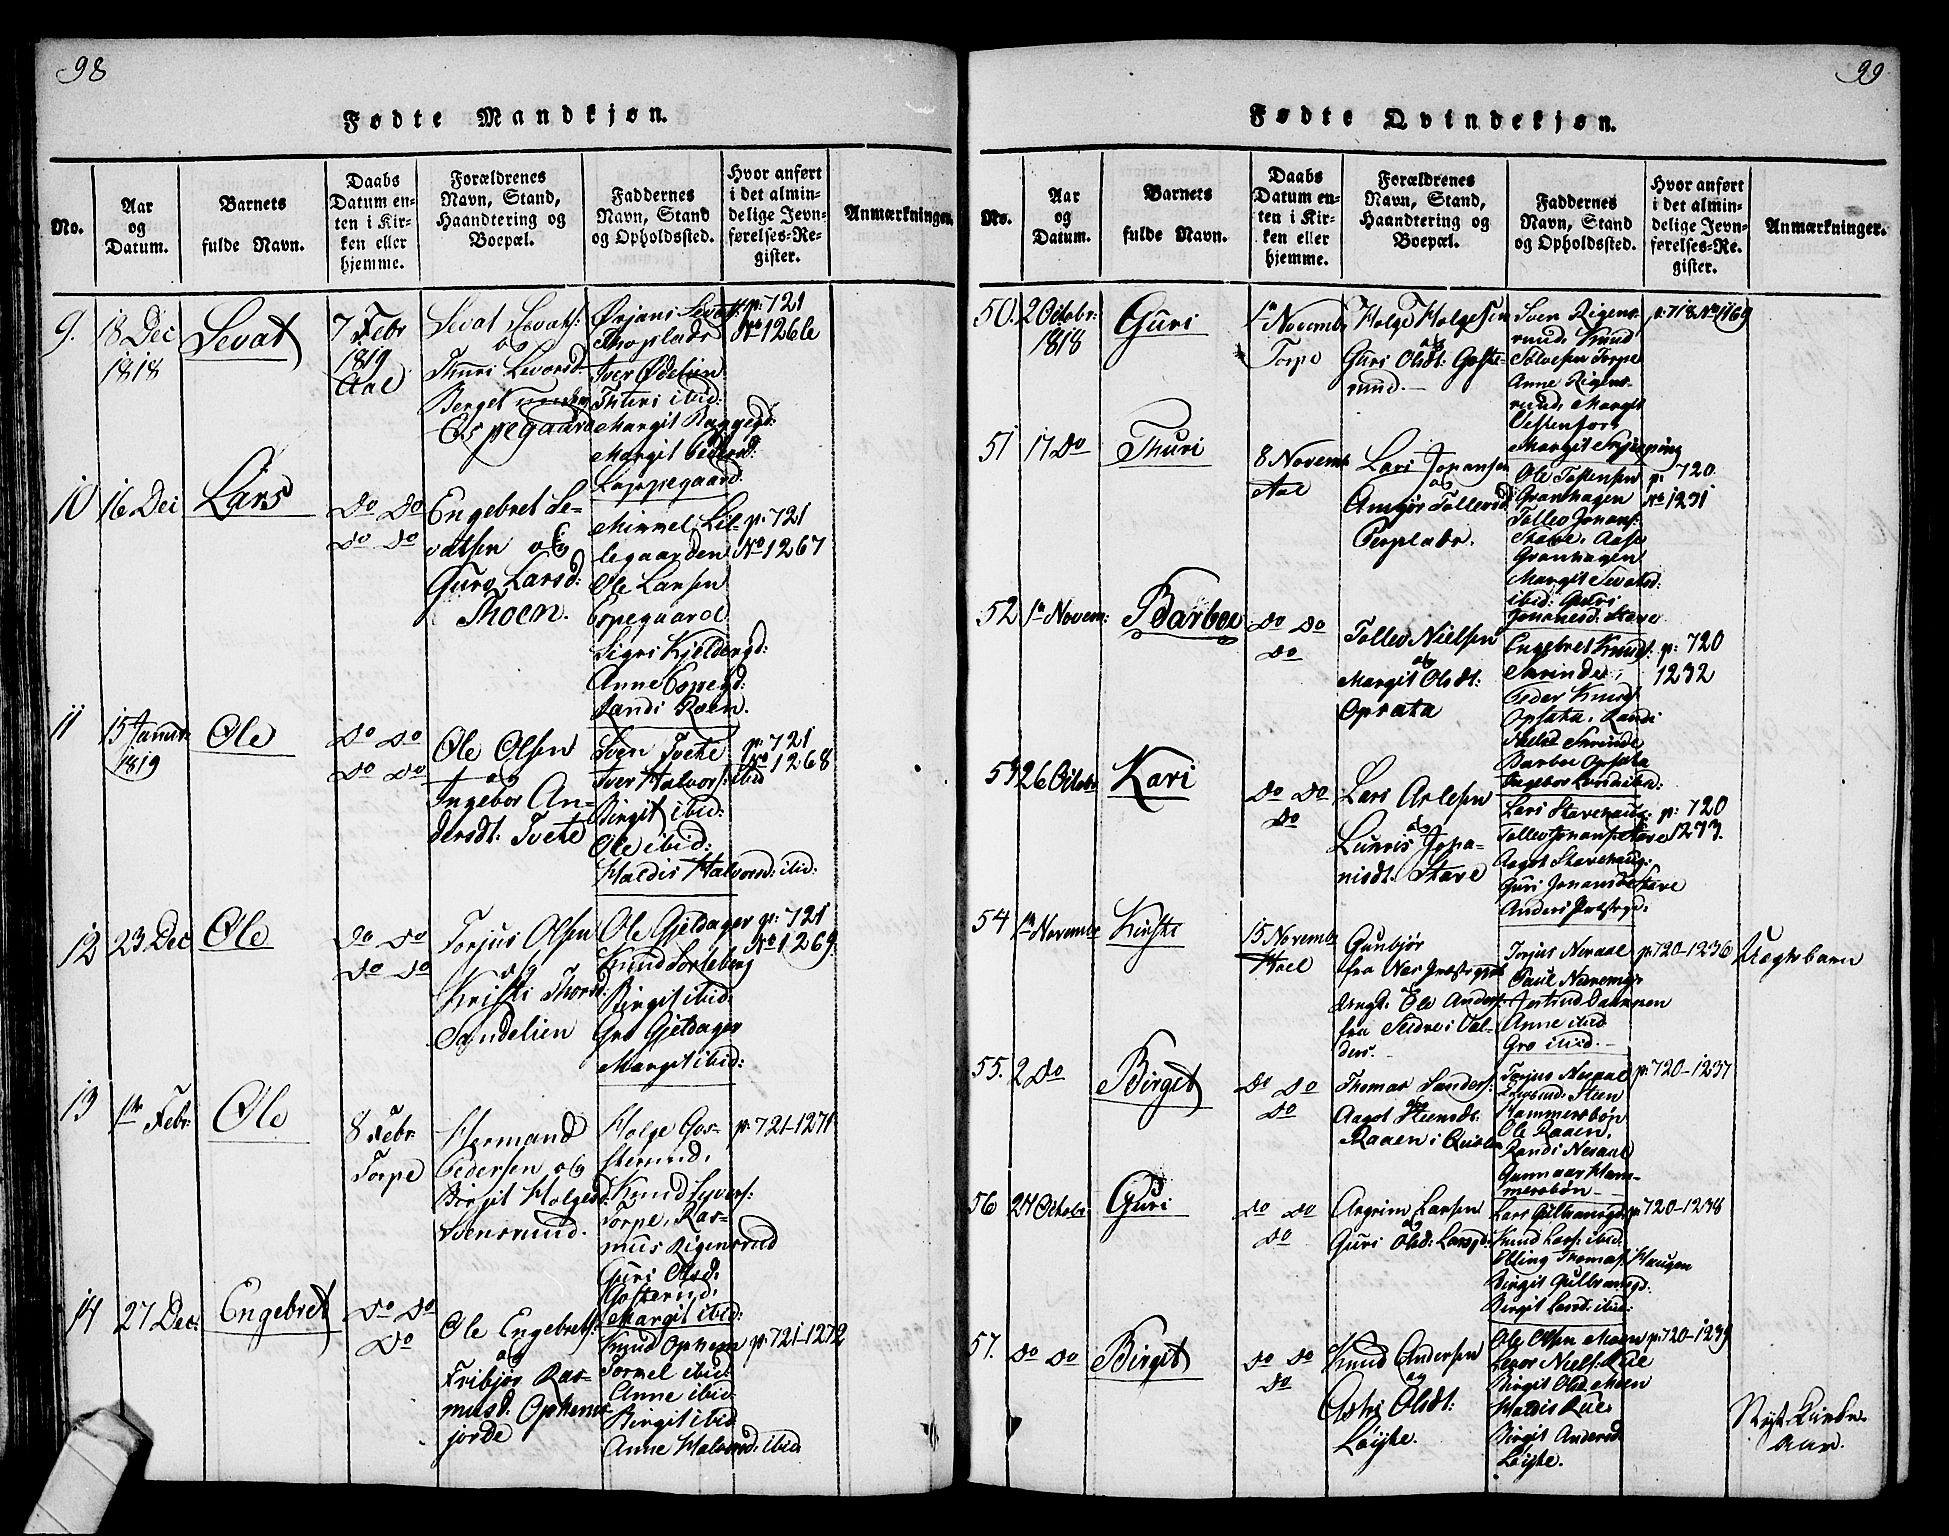 98
Fødte Mandkjøn.
No.
Aar
og
Datum.
Barnets
fulde Navn.
Daabs
Datum en-
ten i Kir-
ken eller
hjemme.
Forældrenes
Navn, Stand,
Haandtering og
Boepæl.
Faddernes
Navn, Stand
og Opholdssted.
Hvor anført
i det almin-
delige Jevn-
førelses-Re-
gister.
Anmærkninger.
9.
18 Dec
1818
Sevat
7 Febr
1819
Aal
Sevat Sevats:
og
Thuri Levorsd
Berget
Espegaard
Ørjans Sevats:
Thoplads
Iver Ødelien
Thuri ibid:
Margit Ruggegd:
Margit Pedersd:
Loppegaard
p: 721
No 1266
10
16 Dec
Lars
Do Do
Do Do
Engebret Se-
vatsen og
Guro Larsd:
Moen.
Mimmel Lil-
legaarden
Ole Larsen
Espegaard
Sigri Kjeldergd:
Anne Espegd:
Randi Roen.
p: 721
No 1267
11
15 Januar
1819
Ole
Do Do
Do Do
Ole Olsen
og
Ingebor An-
dersdt: Tvete
Sven Tvete
Iver Halvors: ibid
Birgit ibid:
Ole ibid:
Haldis Halvorsd: ibid:
p: 721
No 1268
12
23 Dec
Ole
Do Do
Do Do
Torjus Olsen
og
Kristi Thorsd
Sandelien
Ole Gjeldager
Knud Sorteberg
Birgit ibid:
Gro Gjeldager
Margit ibid:
p: 721
No 1269.
13
1ste Febr:
Ole
8 Febr
Torpe
Hermand
Pedersen og
Birgit Holgesd
Svensrund.
Holge Gos-
sterund,
Knud Syvers:
Torpe, Ras-
mus Rigensrud
Guri Olsd:
Gosterud,
Margit ibid:
p: 721-1271
14
27 Dec:
Engebret
Do Do
Do
Ole Engebrets:
og
Fribjør Ras-
musd: Ophens-
jorde
Knud Ophem
Tormel ibid:
Anne ibid
Birgit ibid
Anne Halvorsd: ibid
p: 721-1272
99
Fødte Qvindekjøn.
No.
Aar
og
Datum.
Barnets
fulde Navn.
Daabs
Datum en-
ten i Kir-
ken eller
hjemme.
Forældrenes
Navn, Stand,
Haandtering og
Boepæl.
Faddernes
Navn, Stand
og Opholdssted.
Hvor anført
i det almin-
delige Jevn-
førelses-Re-
gister.
Anmærkninger.
50.
2 Octobr:
1818
Guri
1ste Novembr
Torpe
Holge Holgesen
og
Guri Olsdt: Goste-
rund.
Sven Rigens-
rund, Knud
Solvesen Torpe
Anne Rigens-
rund, Margit
Vestenfor,
Margit Kjøpping
p: 718 No 1169
51
17 Do
Thuri
8 Novemb
Aal
Lars Johansen
og
Ambjør Tollevsd
Perplads.
Ole Tostensen
Granhagen
Tollev Johans:
Stave, Aase
Granhagen
Margit Sevatsd:
ibid: Guri
Johansd: Stave
p: 720
No 1231
52
1ste Novem:
Barboe
Do Do
Do
Tollev Nielsen
og
Margit Olsdt:
Opsata
Engebret Knuds:
Svrinde,
Peder Knuds
Opsata, Randi
Nielsd Svrinde
Barboe Opsata
Ingebor Larsd ibid:
p: 720
1232
53
26 Octobr
Kari
Do Do
Do
Lars Aslesen
og
Lunvis Joha-
nisdt. Stave
Lars Stavehaug:
Tollev Johans: Stave
Aagot Stavehaug:
Guri Johansd Stave
Anders Præstegd:
p: 720
1233.
54
1ste Novembr
Kirsti
15 Novembr
Aal
Gunbjør
fra Næs Præstegjeld
Ungk: Ole Anders:
fra Slidre i Val-
ders.
Torjus Nesaal
Paul Noremoe
Gertrud Dammen
Anne ibid
Gro ibid.
p: 720-1236
Uægtebarn
55.
2 Do
Birget
Do Do
Do
Thomas Sanders:
og
Aagot Steensdt:
Raaen i
Torjus Nesaal
Steen
Hammersbøn
Ole Raaen,
Randi Nesaal
Gunnaar Ham-
mersbøn
p: 720-1237
56
24 Octobr:
Guri
Do Do
Do
Asgrim Larsen
og
Guri Olsd: Larsgd:
Lars Gulbransgd:
Knud Lars: ibid
Elling Thomas: Haugen
Birgit Gulbransgd:
Birgit Larsd: ibid:
p: 720-1238
57.
Do Do
Birgit
Do Do
Do
Knud Andersen
og
Astri Olsdt:
Løijte.
Ole Olsen Moen
Levor Niels: Rue
Birgit Olsd: Moen
Haldis Rue.
Birgit Andersd
Løijte.
p: 720-1239
Nyt Kirke-
Aar.